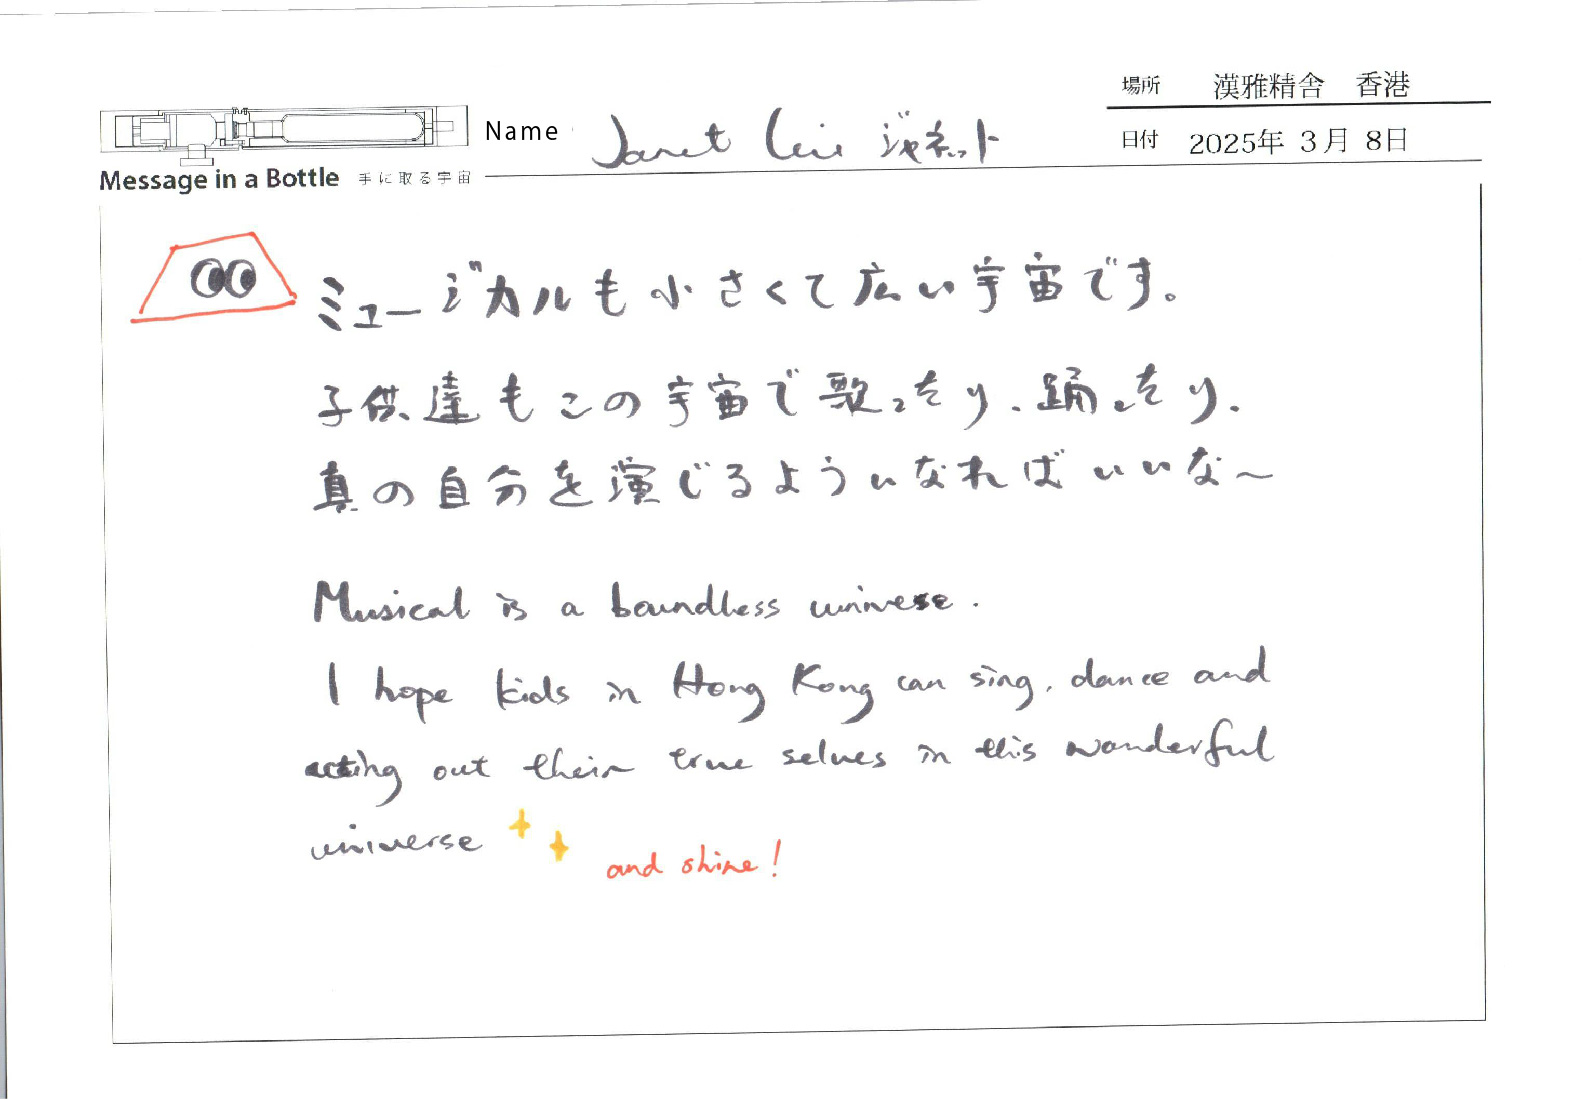 場所 漢雅精舍 香港
Name Janet Lui ジャネット
日付 2025年 3月 8日
Message in a Bottle 手に取る宇宙
ミュージカルも小さくて広い宇宙です。
子供達もこの宇宙で歌ったり、踊ったり、
真の自分を演じるようになればいいな〜
Musical is a boundless universe.
I hope kids in Hong Kong can sing, dance and
acting out their true selves in this wonderful
universe
and shine!